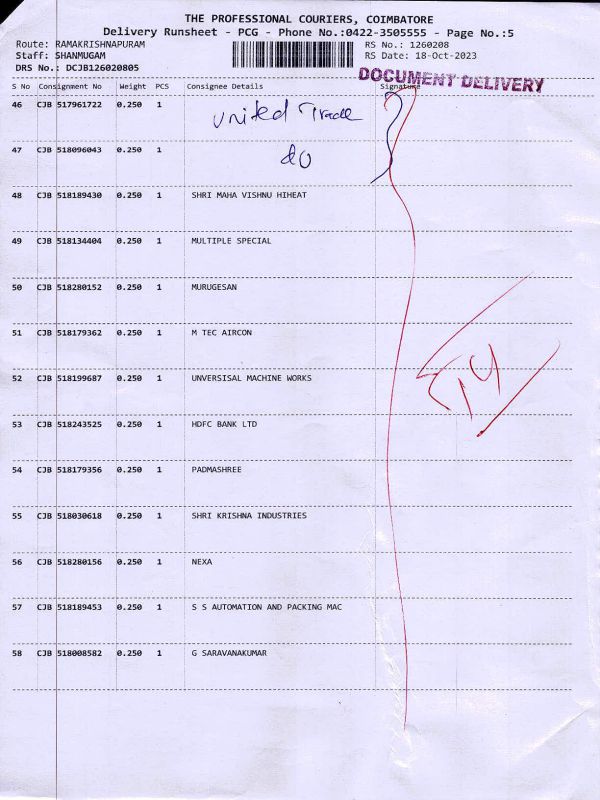 THE PROFESSIONAL COURIERS, COIMBATORE
Delivery Runsheet - PCG - Phone No.:0422-3505555 - Page No.:5
Route: RAMAKRISHNAPURAM RS No.: 1260208
Staff: SHANMUGAM RS Date: 18-Oct-2023
DRS No.: DCJB126020805
DOCUMENT DELIVERY
S No Consignment No Weight PCS Consignee Details Signature
46 CJB 517961722 0.250 1 United Trade
47 CJB 518096043 0.250 1 do
48 CJB 518189430 0.250 1 SHRI MAHA VISHNU HIHEAT
49 CJB 518134404 0.250 1 MULTIPLE SPECIAL
50 CJB 518280152 0.250 1 MURUGESAN
51 CJB 518179362 0.250 1 M TEC AIRCON
52 CJB 518199687 0.250 1 UNVERSISAL MACHINE WORKS
53 CJB 518243525 0.250 1 HDFC BANK LTD
54 CJB 518179356 0.250 1 PADMASHREE
55 CJB 518030618 0.250 1 SHRI KRISHNA INDUSTRIES
56 CJB 518280156 0.250 1 NEXA
57 CJB 518189453 0.250 1 S S AUTOMATION AND PACKING MAC
58 CJB 518008582 0.250 1 G SARAVANAKUMAR